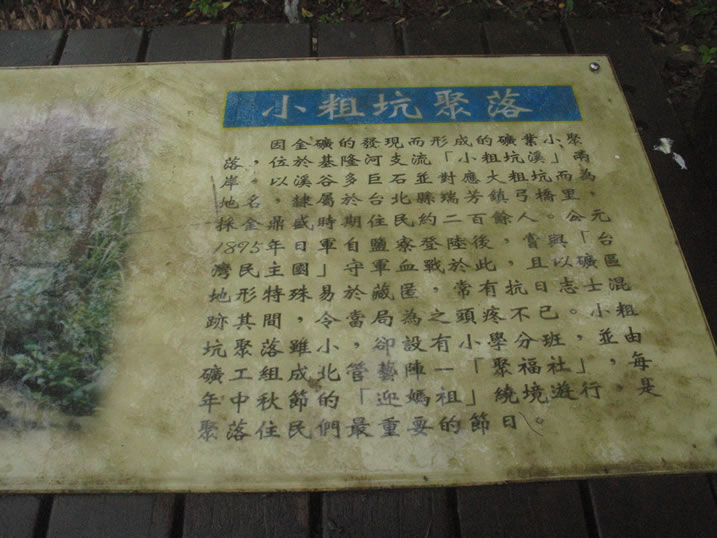 小粗坑聚落
因金礦的發現而形成的礦業小聚
落，位於基隆河支流「小粗坑溪」兩
岸。以溪谷多巨石並對應大粗坑而為
地名，隸屬於台北縣瑞芳鎮弓橋里，
採金鼎盛時期住民約二百餘人。公元
1895年日軍自鹽寮登陸後，嘗與「台
灣民主國」守軍血戰於此，且以礦區
地形特殊易於藏匿，常有抗日志士混
跡其間，令當局為之頭疼不已。小粗
坑聚落雖小，卻設有小學分班，並由
礦工組成北管藝陣—「聚福社」，每
年中秋節的「迎媽祖」繞境遊行，是
聚落住民們最重要的節日。